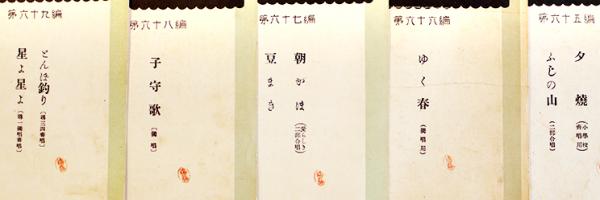 第六十九編
とんぼ釣り
星よ星よ
第六十八編
子守歌
(獨唱)
第六十七編
朝がほ
(愛らしき二部合唱)
豆まき
第六十六編
ゆく春
(獨唱用)
第六十五編
夕燒
(小學校齊唱用)
ふじの山
(二部合唱)